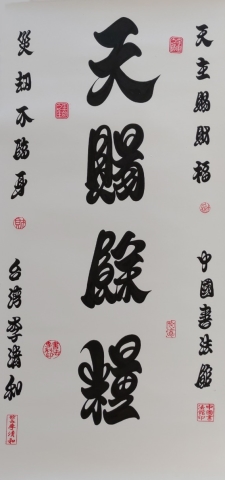 天主賜財福
中國書法館
天賜餘糧
災劫不臨身
台灣李清和